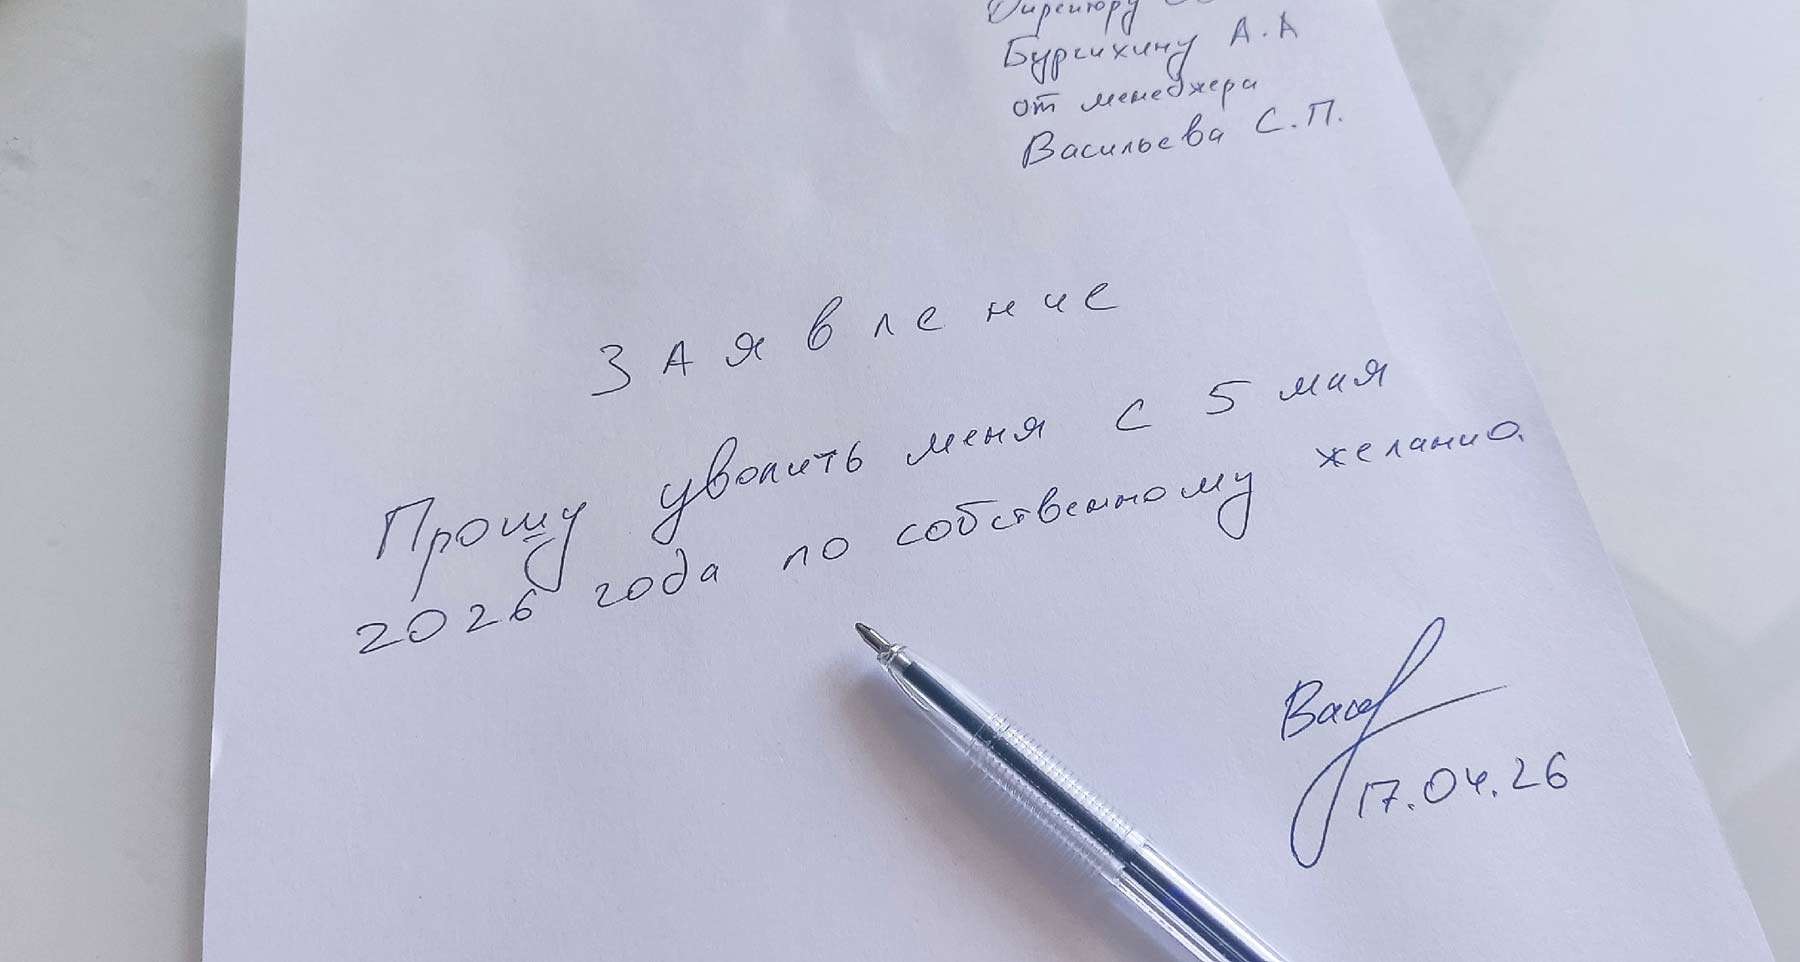 Директору
Бурсихину А.А
от менеджера
Васильева С.П.
Заявление
Прошу уволить меня с 5 мая
2026 года по собственному желанию.
Вас
17.04.26